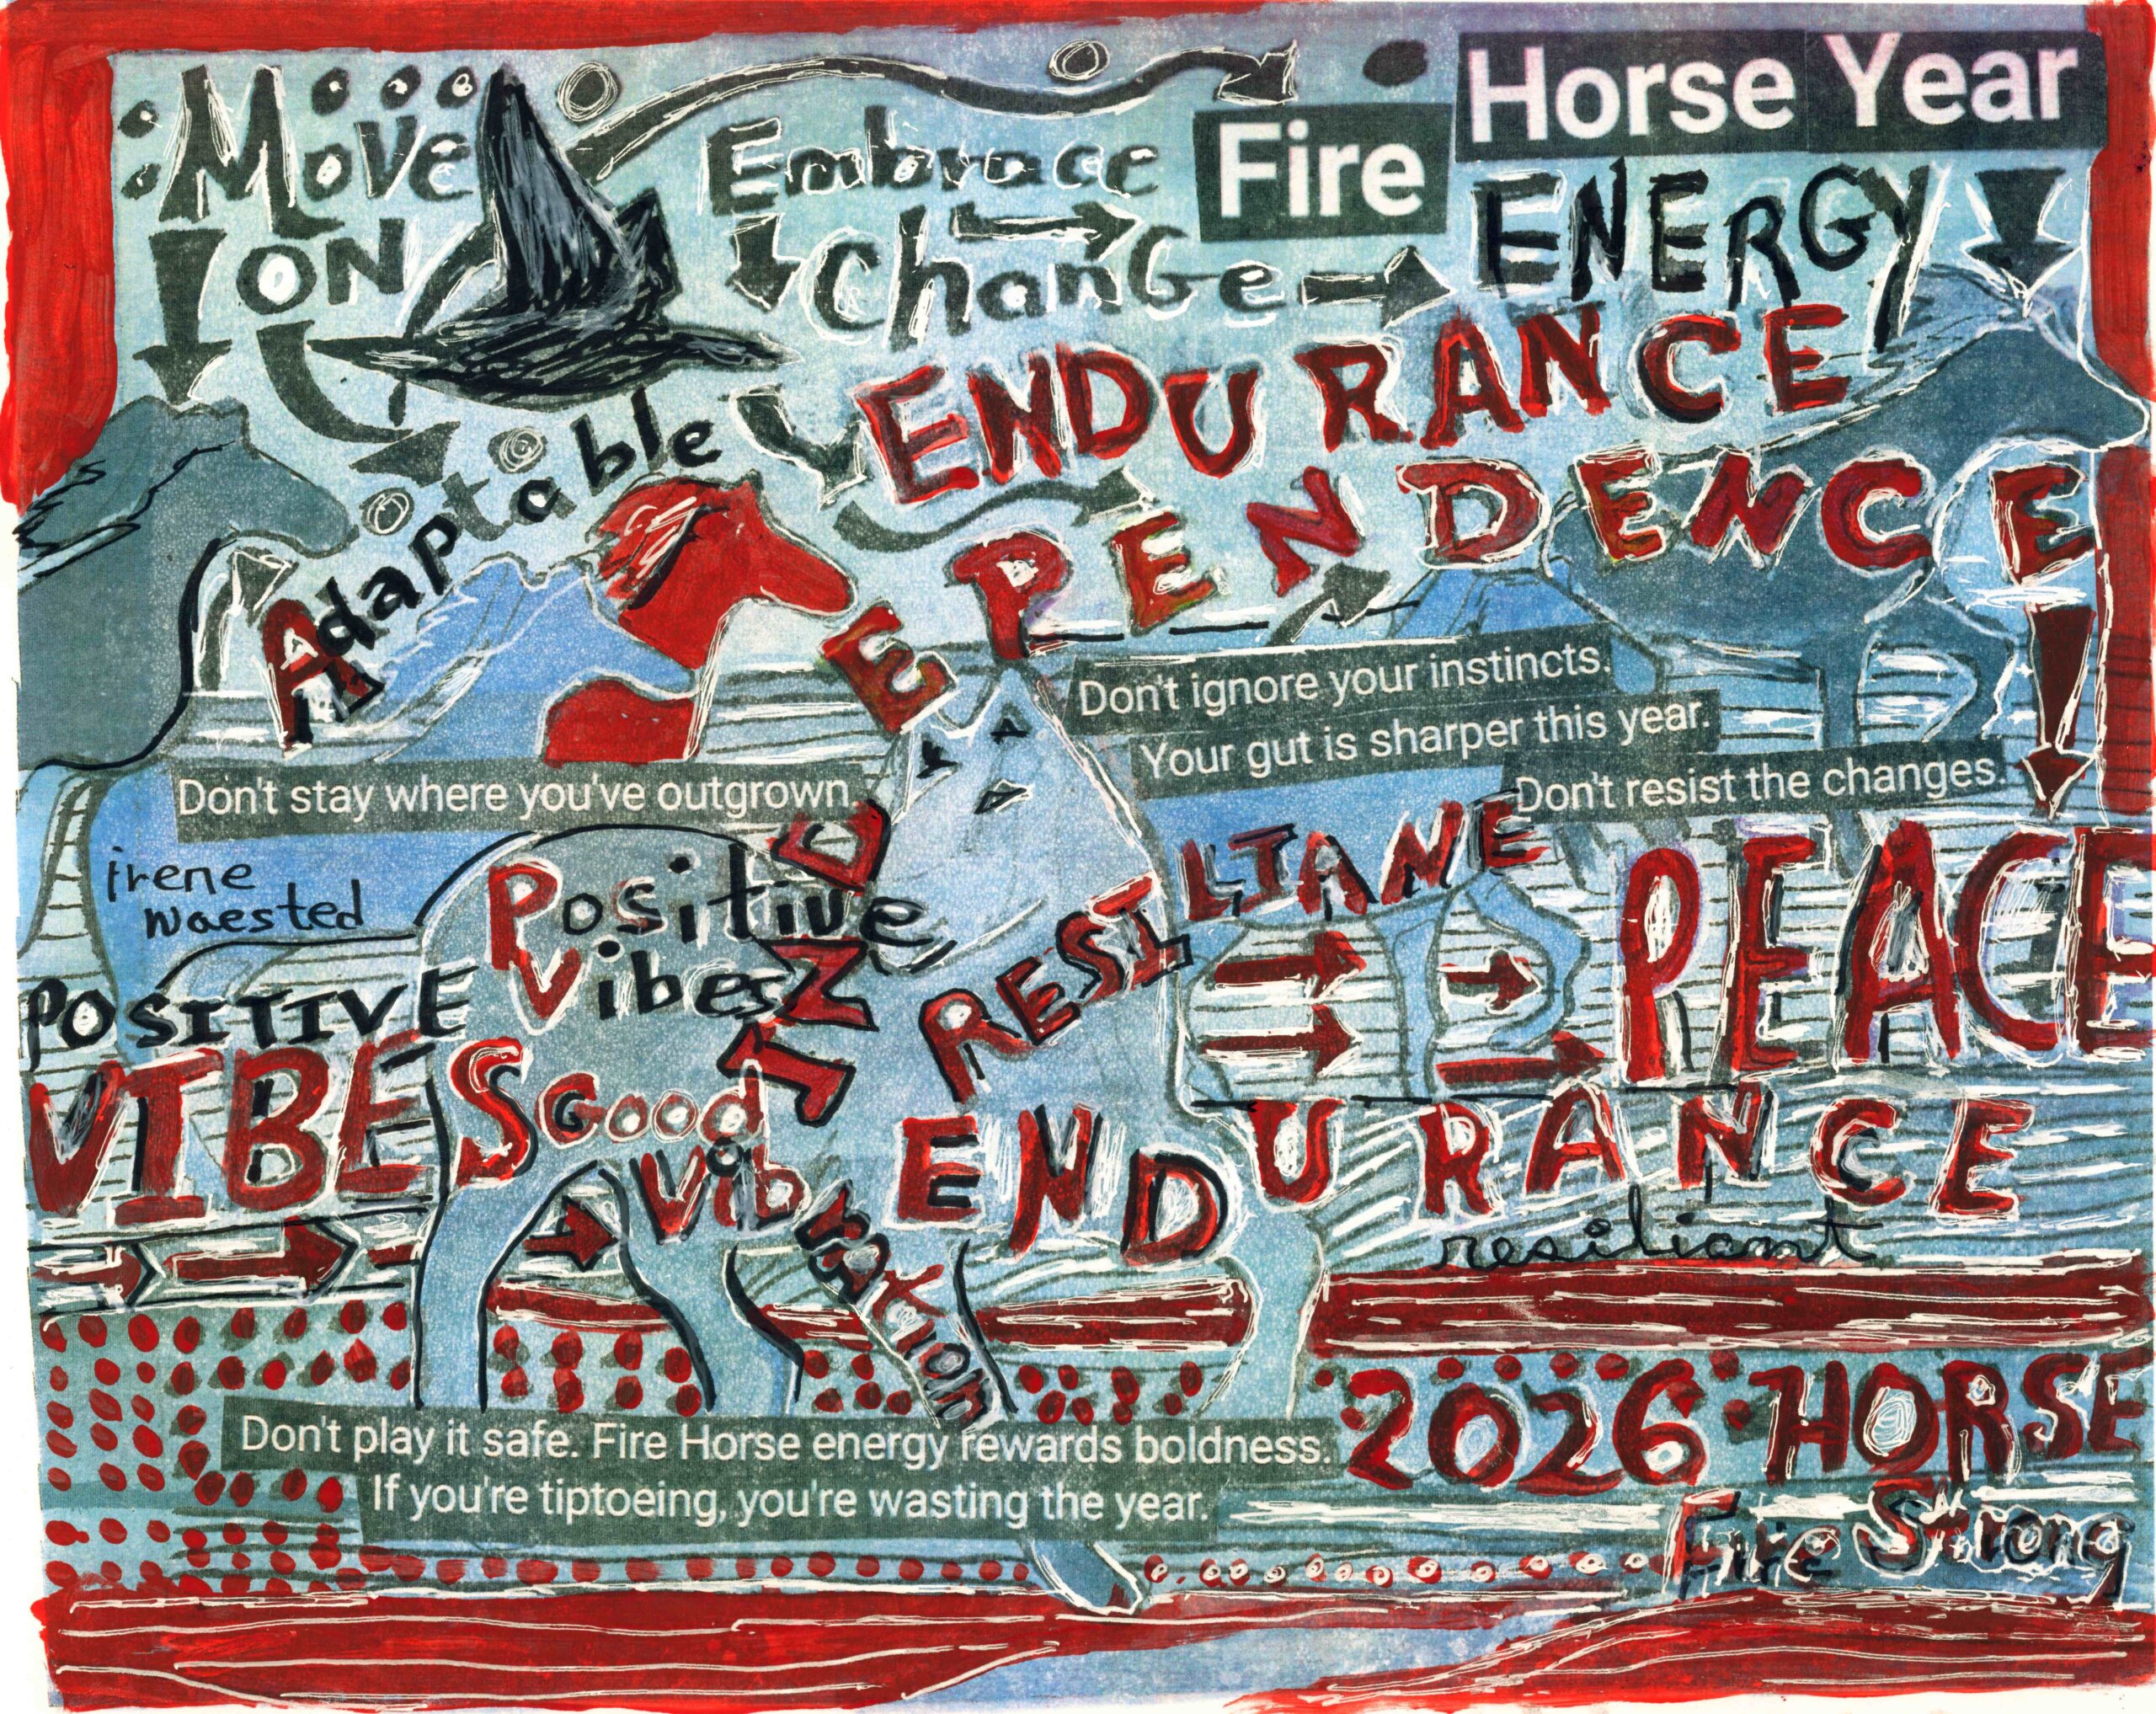 Move
ON
Embrace
Change
Fire
Horse Year
ENERGY
ENDURANCE
Adaptable
INDEPENDENCE
Don't ignore your instincts.
Your gut is sharper this year.
Don't resist the changes.
Don't stay where you've outgrown.
irene
waested
Positive
Vibes
RESILIANE
PEACE
POSITIVE
VIBES
Good
Vibration
ENDURANCE
resiliant
2026 HORSE
Don't play it safe. Fire Horse energy rewards boldness.
If you're tiptoeing, you're wasting the year.
Fire Strong